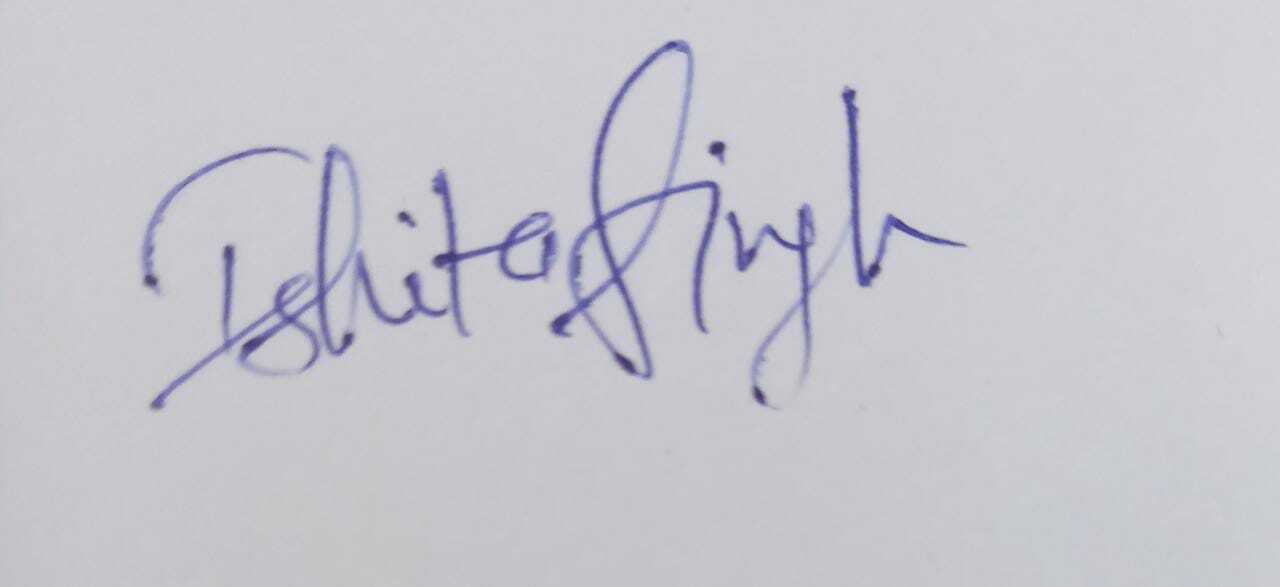 Ishita Singh